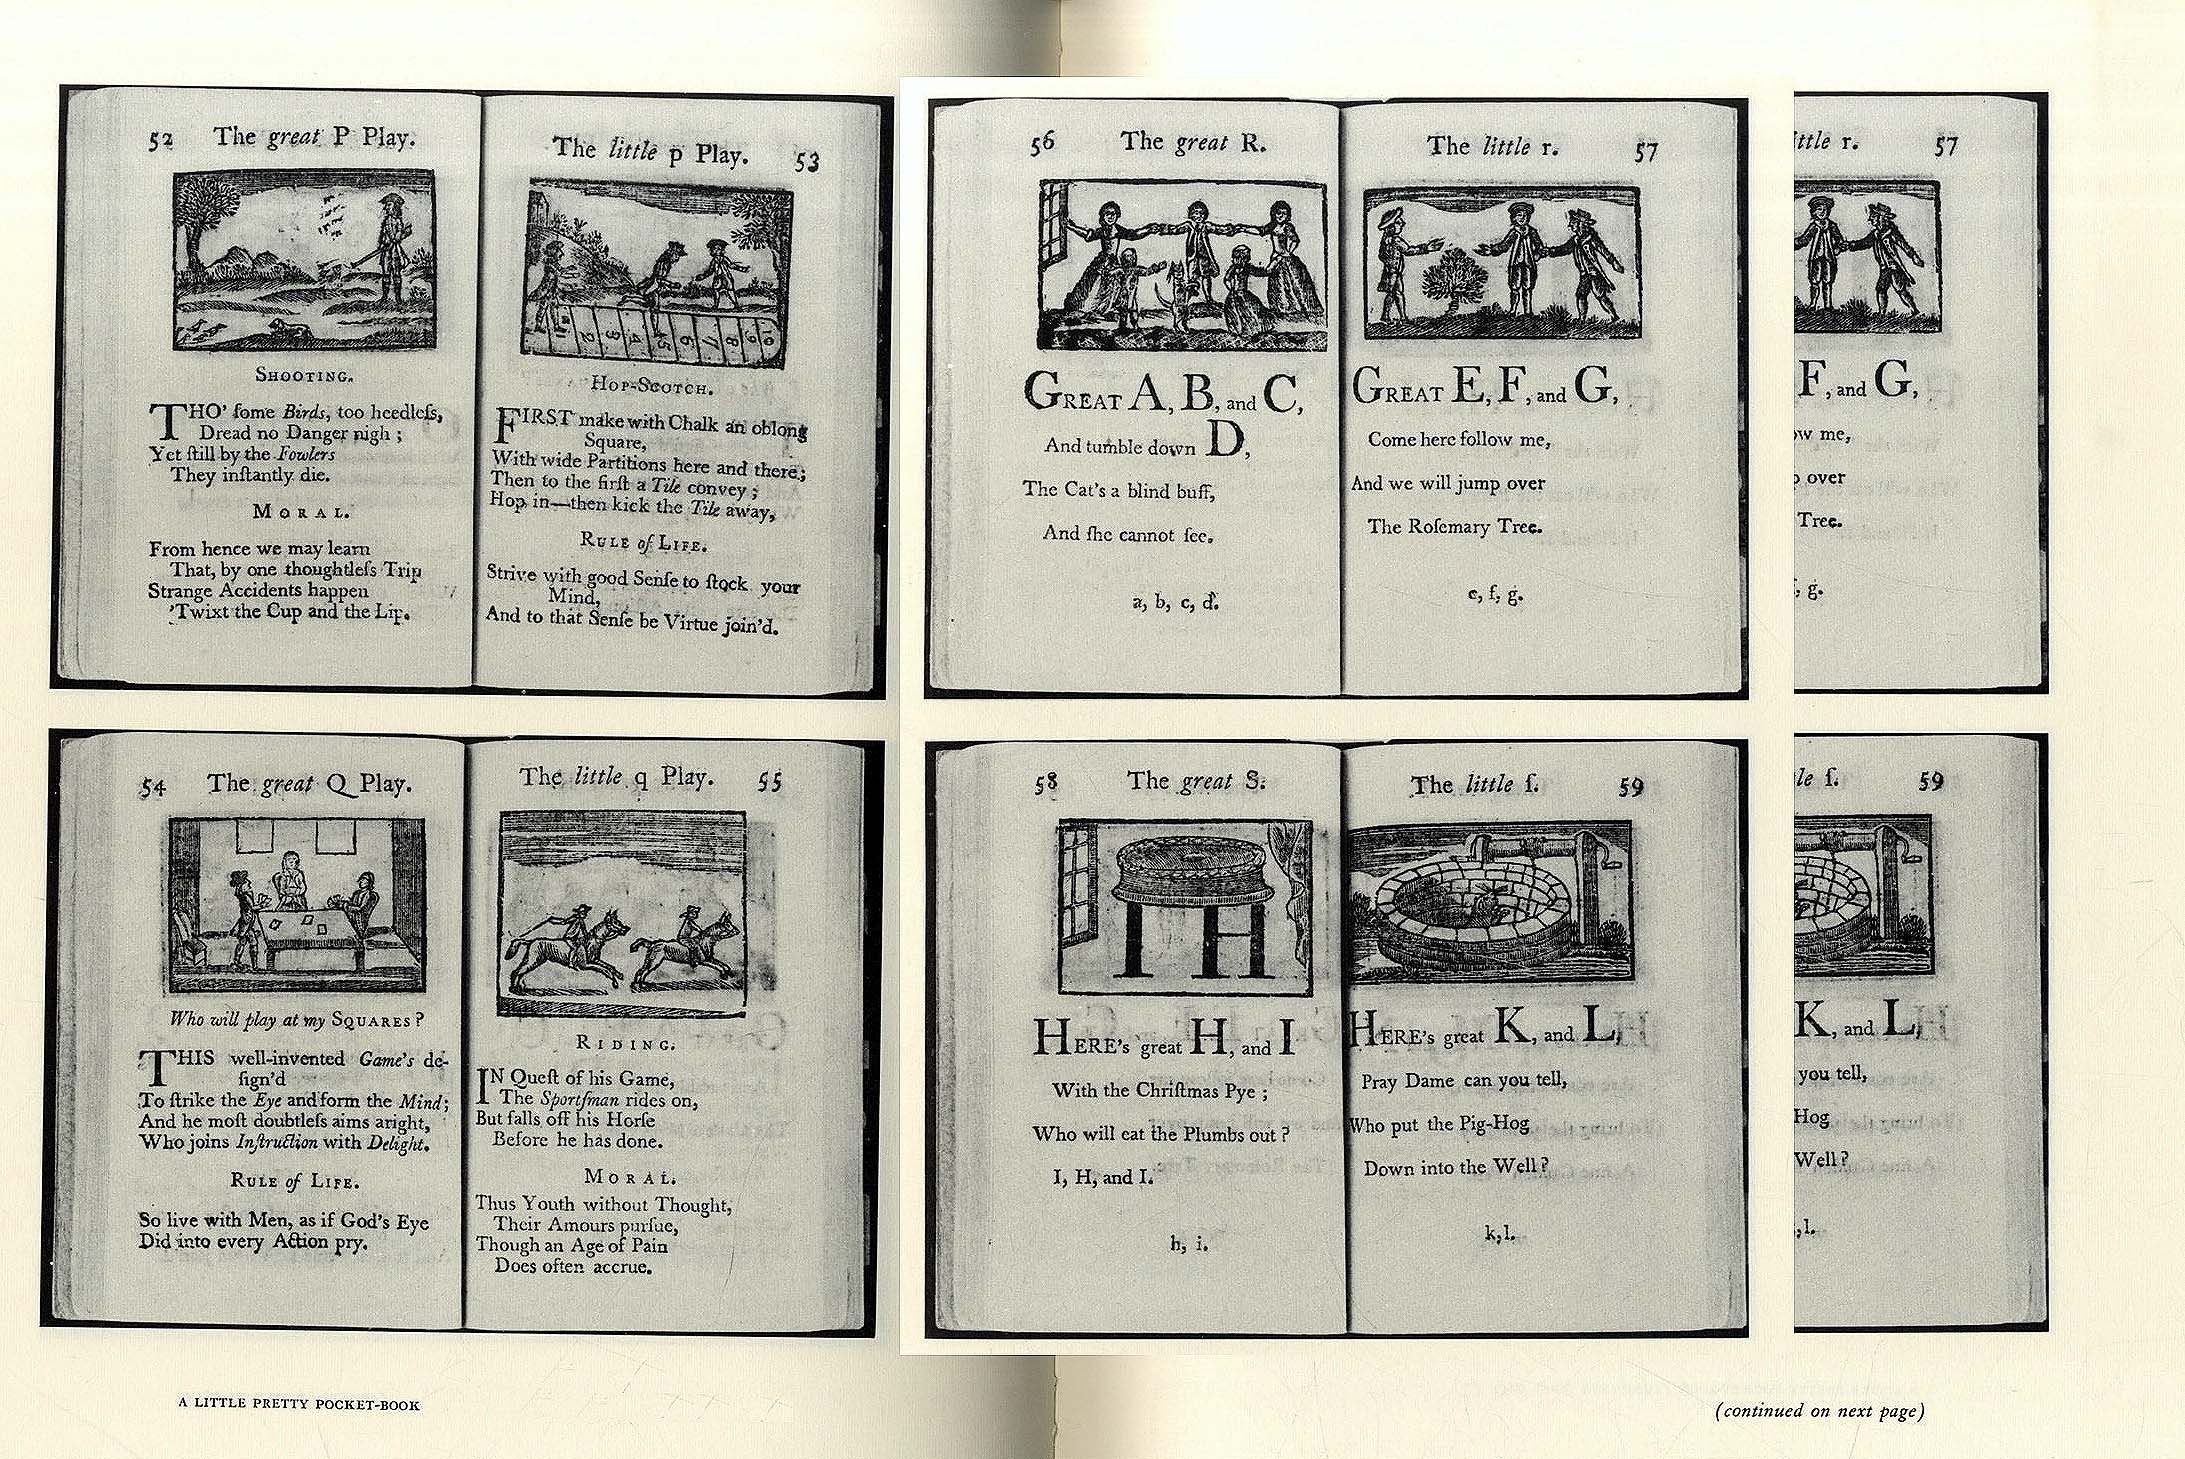 52 The great P Play.
SHOOTING.
THO' ſome Birds, too heedleſs,
Dread no Danger nigh ;
Yet ſtill by the Fowlers
They inſtantly die.
MORAL.
From hence we may learn
That, by one thoughtleſs Trip
Strange Accidents happen
'Twixt the Cup and the Lip.
The little p Play. 53
1 2 3 4 5 6 7 8 9 10
HOP-SCOTCH.
FIRST make with Chalk an oblong
Square,
With wide Partitions here and there;
Then to the firſt a Tile convey ;
Hop in—then kick the Tile away,
RULE of LIFE.
Strive with good Senſe to ſtock your
Mind,
And to that Senſe be Virtue join'd.
56 The great R.
GREAT A, B, and C,
And tumble down D,
The Cat's a blind buff,
And ſhe cannot ſee.
a, b, c, d.
The little r. 57
GREAT E, F, and G,
Come here follow me,
And we will jump over
The Roſemary Tree.
e, f, g.
ittle r. 57
F, and G,
ow me,
over
Tree.
g.
54 The great Q Play.
Who will play at my SQUARES ?
THIS well-invented Game's de-
ſign'd
To ſtrike the Eye and form the Mind;
And he moſt doubtleſs aims aright,
Who joins Inſtruction with Delight.
RULE of LIFE.
So live with Men, as if God's Eye
Did into every Action pry.
The little q Play. 55
RIDING.
IN Queſt of his Game,
The Sportſman rides on,
But falls off his Horſe
Before he has done.
MORAL.
Thus Youth without Thought,
Their Amours purſue,
Though an Age of Pain
Does often accrue.
58 The great S.
I H
HERE's great H, and I
With the Chriſtmas Pye ;
Who will eat the Plumbs out ?
I, H, and I.
h, i.
The little ſ. 59
HERE's great K, and L,
Pray Dame can you tell,
Who put the Pig-Hog
Down into the Well ?
k, l.
le ſ. 59
K, and L,
you tell,
Hog
Well ?
,l.
A LITTLE PRETTY POCKET-BOOK
(continued on next page)